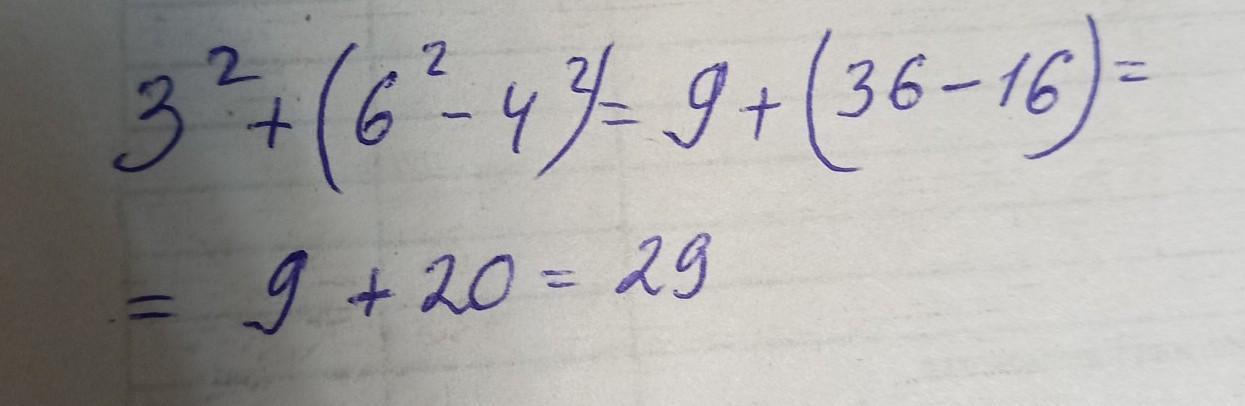 3² + (6² - 4²) = 9 + (36 - 16) =
= 9 + 20 = 29